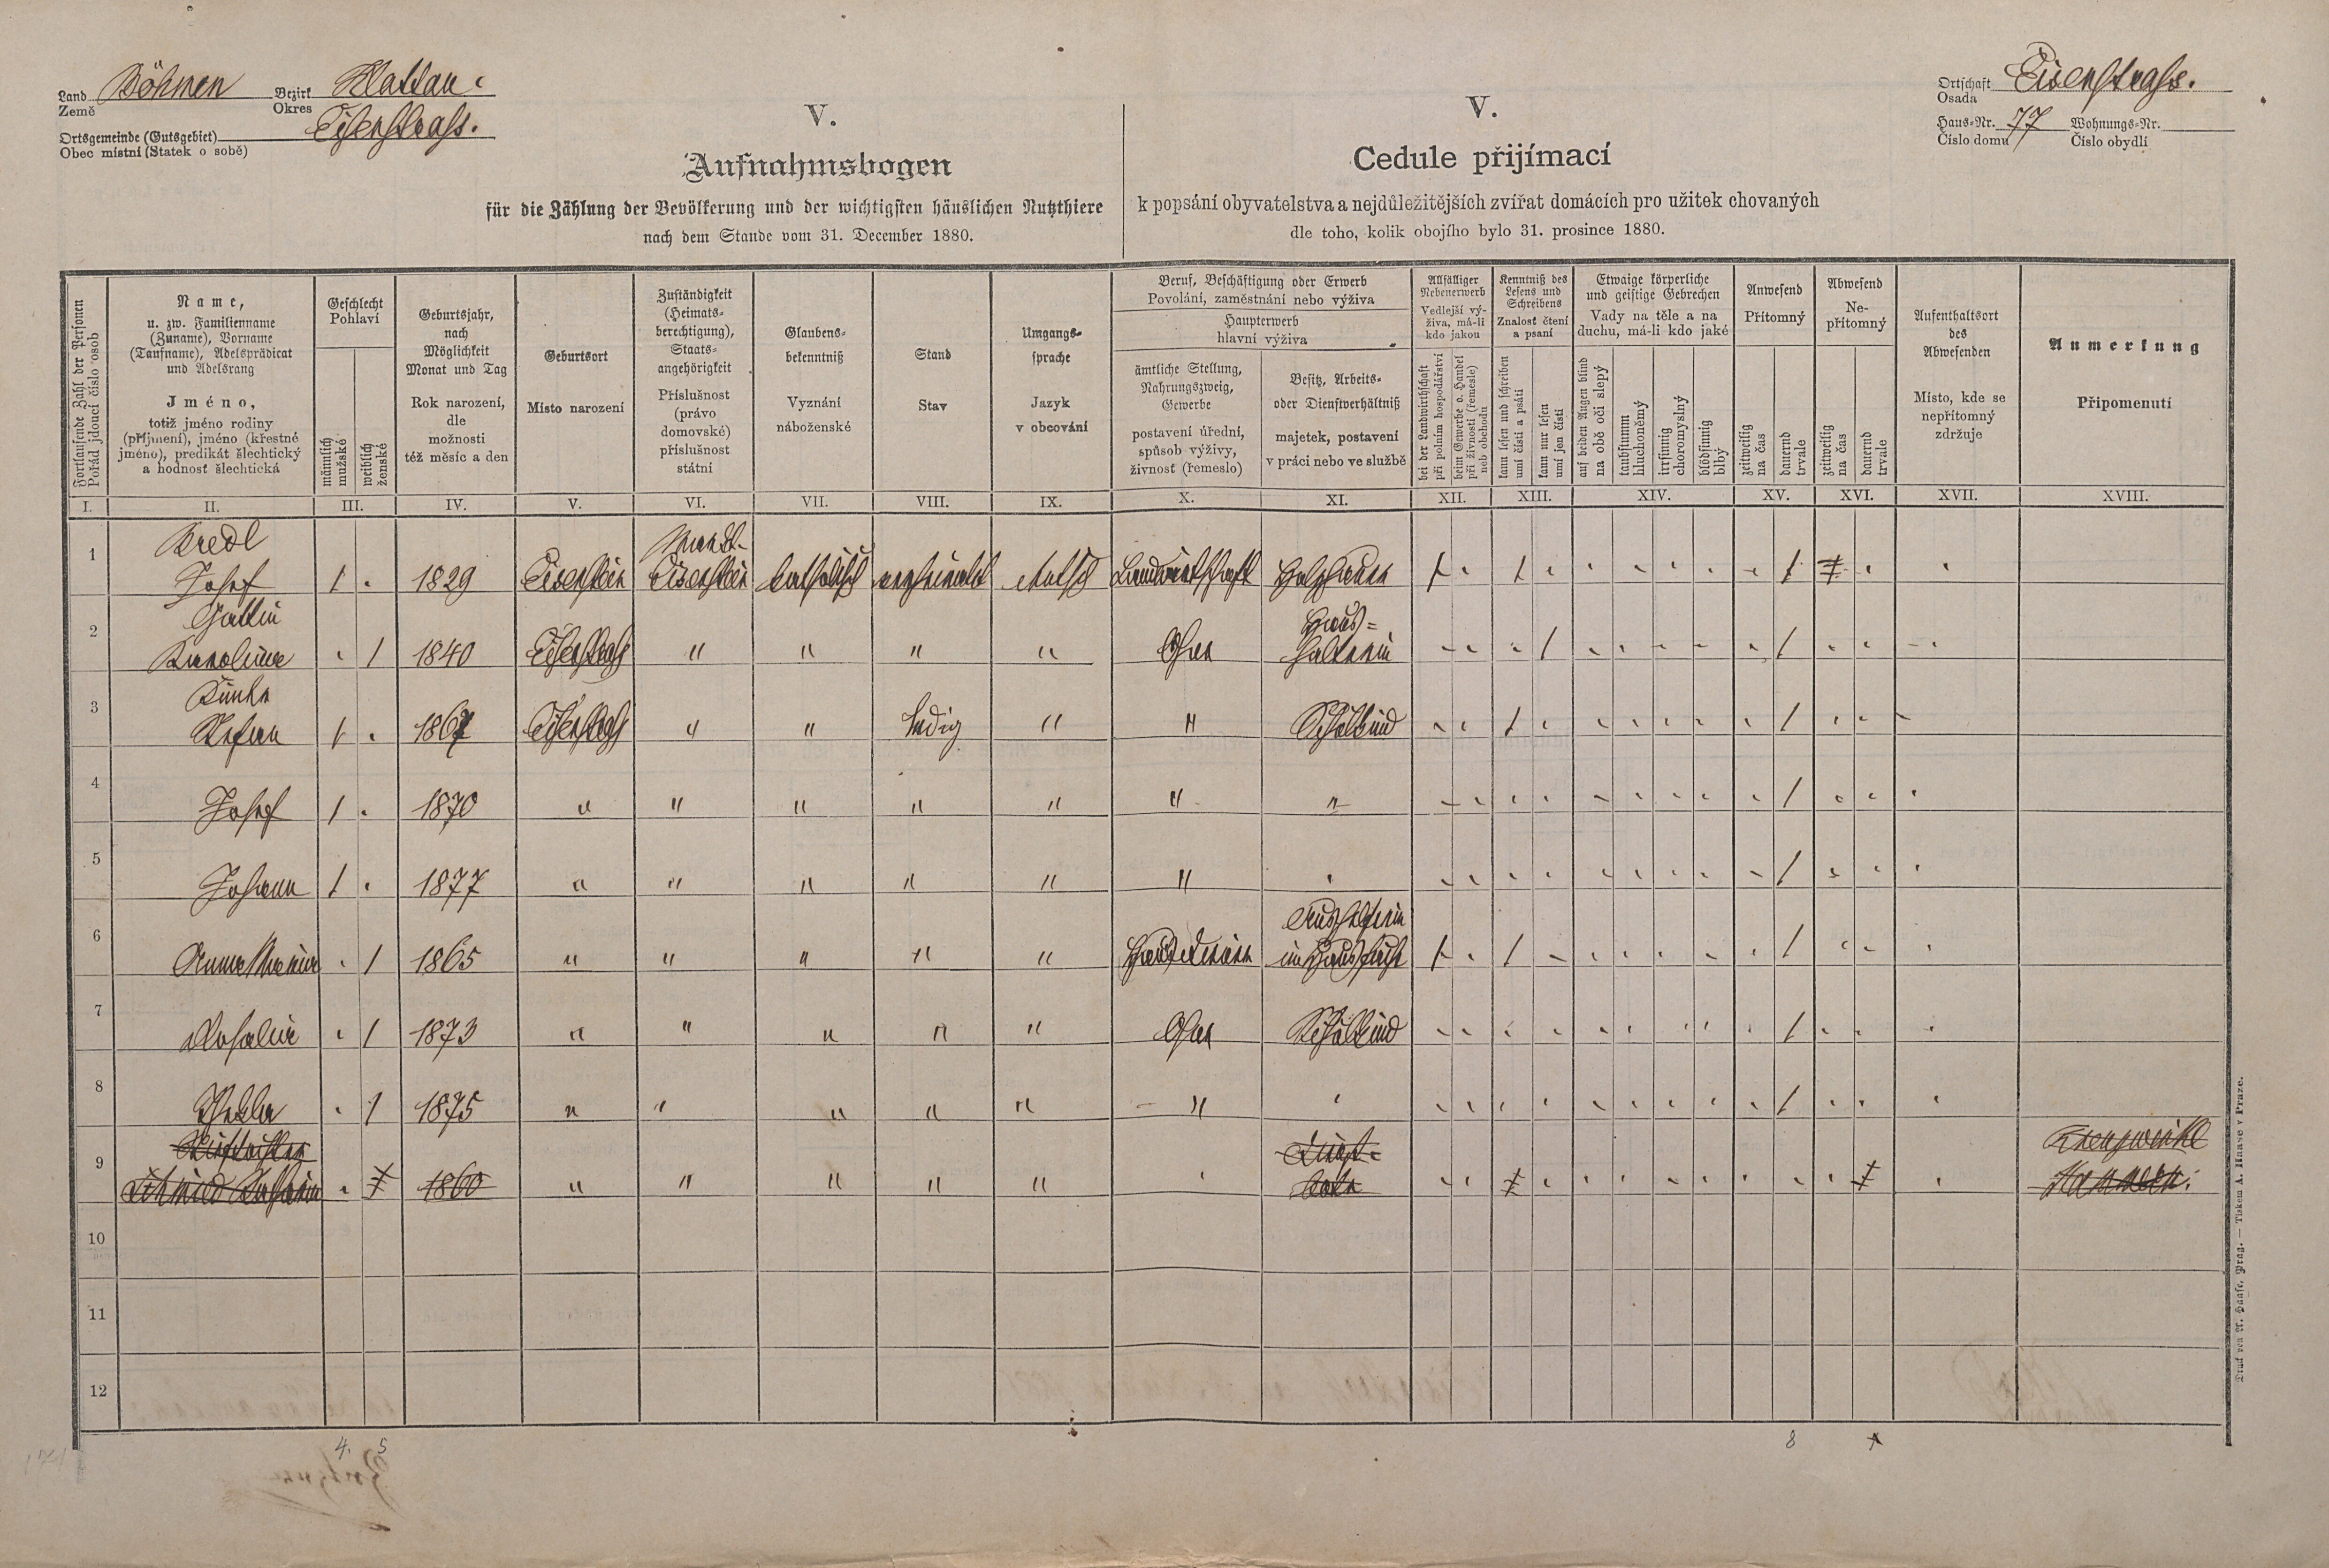 Land Böhmen Bezirk Klattau.
Země Okres
Ortsgemeinde (Gutsgebiet) Eisenstrass.
Obec místní (Statek o sobě)
V.
Aufnahmsbogen
für die Zählung der Bevölkerung und der wichtigsten häuslichen Nutzthiere
nach dem Stande vom 31. December 1880.
V.
Cedule přijímací
k popsání obyvatelstva a nejdůležitějších zvířat domácích pro užitek chovaných
dle toho, kolik obojího bylo 31. prosince 1880.
Ortschaft Eisenstrass.
Osada
Haus-Nr. 77 Wohnungs-Nr.
Číslo domu Číslo obydlí
Fortlaufende Zahl der Personen
Pořád jdoucí číslo osob
Name,
u. zw. Familienname
(Zuname), Vorname
(Taufname), Adelsprädicat
und Adelsrang
Jméno,
totiž jméno rodiny
(příjmení), jméno (křestné
jméno), predikát šlechtický
a hodnost šlechtická
Geschlecht
Pohlaví
männlich
mužské
weiblich
ženské
Geburtsjahr,
nach
Möglichkeit
Monat und Tag
Rok narození,
dle
možnosti
též měsíc a den
Geburtsort
Místo narození
Zuständigkeit
(Heimats-
berechtigung),
Staats-
angehörigkeit
Příslušnost
(právo
domovské)
příslušnost
státní
Glaubens-
bekenntniß
Vyznání
náboženské
Stand
Stav
Umgangs-
sprache
Jazyk
v obcování
Beruf, Beschäftigung oder Erwerb
Povolání, zaměstnání nebo výživa
Haupterwerb
hlavní výživa
ämtliche Stellung,
Nahrungszweig,
Gewerbe
postavení úřední,
spůsob výživy,
živnost (řemeslo)
Besitz, Arbeits-
oder Dienstverhältniß
majetek, postavení
v práci nebo ve službě
Allfälliger
Nebenerwerb
Vedlejší vý-
živa, má-li
kdo jakou
bei der Landwirthschaft
při polním hospodářství
beim Gewerbe o. Handel
při živnosti (řemesle)
neb obchodu
Kenntniß des
Lesens und
Schreibens
Znalost čtení
a psaní
kann lesen und schreiben
umí čísti a psáti
kann nur lesen
umí jen čísti
Etwaige körperliche
und geistige Gebrechen
Vady na těle a na
duchu, má-li kdo jaké
auf beiden Augen blind
na obě oči slepý
taubstumm
hluchoněmý
irrsinnig
choromyslný
blödsinnig
blbý
Anwesend
Přítomný
zeitweilig
na čas
dauernd
trvale
Abwesend
Ne-
přítomný
zeitweilig
na čas
dauernd
trvale
Aufenthaltsort
des
Abwesenden
Místo, kde se
nepřítomný
zdržuje
Anmerkung
Připomenutí
I. II. III. IV. V. VI. VII. VIII. IX. X. XI. XII. XIII. XIV. XV. XVI. XVII. XVIII.
Bredl Markt-
1 Josef 1 1829 Eisenstein Eisenstein katholisch verheiratet deutsch Landwirtschaft 1 1 1
Gattin Haus=
2 Karoline 1 1840 Eisenstrass " " " " Ohne hälterin 1 1
Kinder
3 Stefan 1 1867 Eisenstrass " " ledig " " Schulkind 1 1
4 Josef 1 1870 " " " " " " " 1
5 Johann 1 1877 " " " " " " 1
6 Anna Maria 1 1865 " " " " " 1 1 1
7 Rosalie 1 1873 " " " " " Ohne Schulkind 1
8 1 1875 " " " " " " 1
Dienst-
9 Schmied 1860 " " " " " bote
10
11
12
4. 5 8
Druck von A. Haase, Prag. — Tiskem A. Haase v Praze.